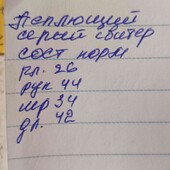 Теплющий
серый свитер
сост норм
пл. 26
рук 44
шр 34
дл. 42